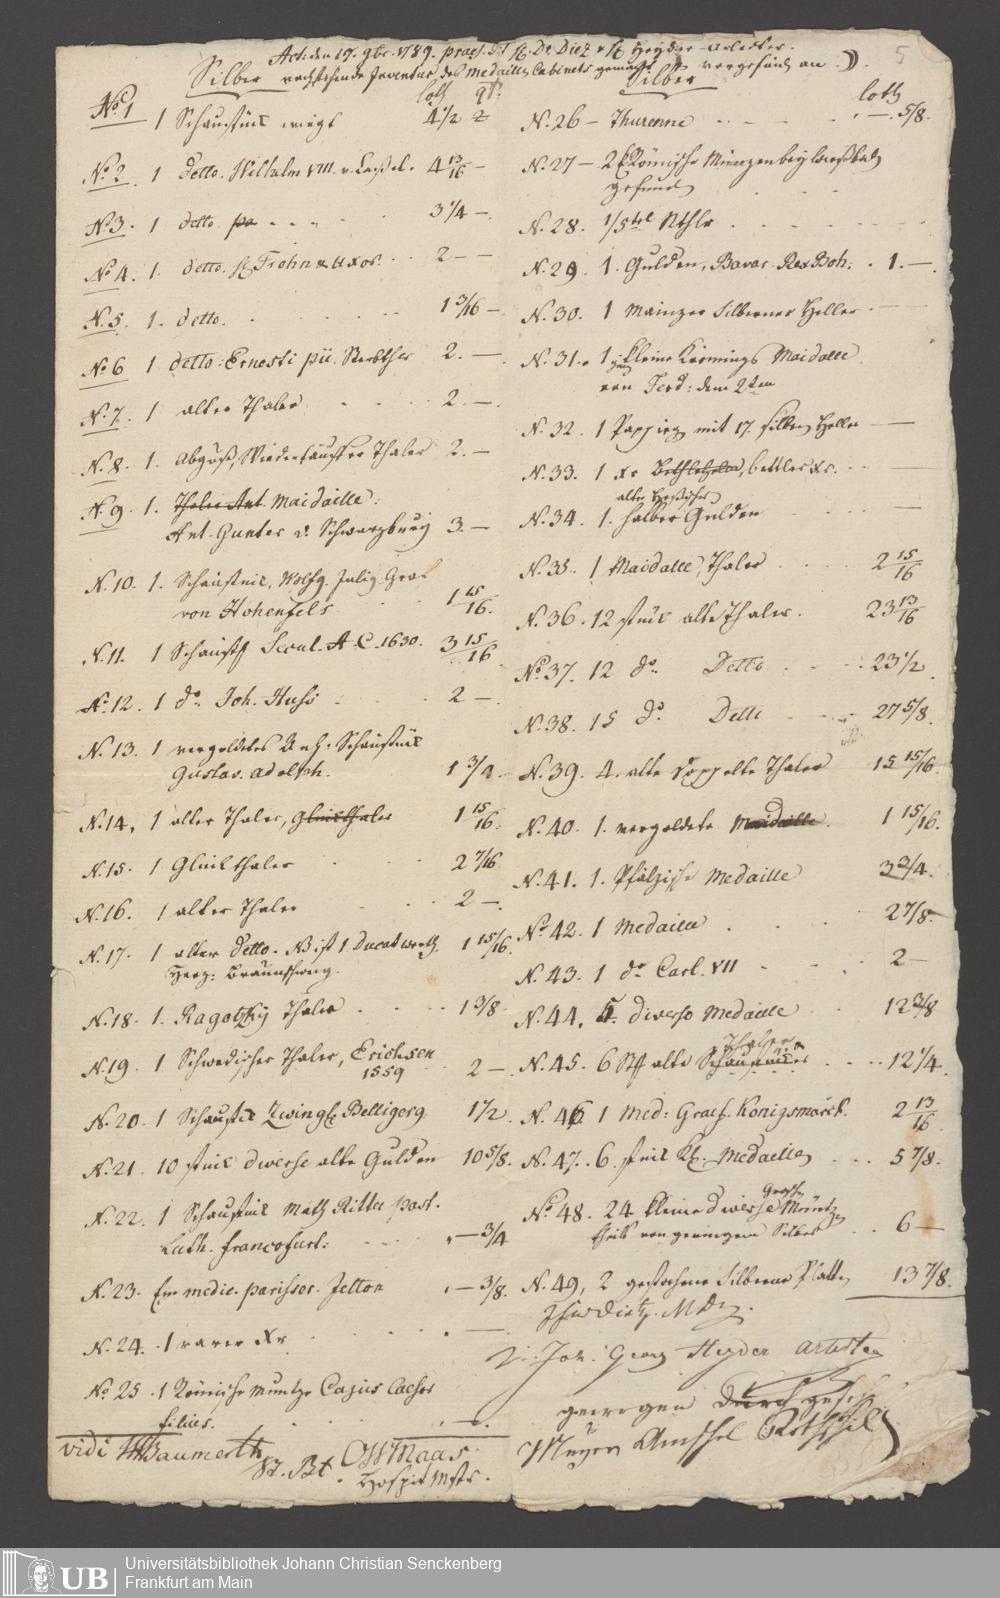 Act: den 17. 9br. 1789. praes. Tit H. Dr. Diez & H. Heyder
nachstehende Inventur des Medaillen Cabinets gemacht vorgefunden an
Silber
loth qt.
No. 1 1 Schaustück wiegt 4 1/2 2
No. 2 1 detto. Wilhelm VIII. v. Caßel. 4 13/16 —
No. 3. 1 detto 3 1/4 —.
No. 4. 1. detto. H. Frohn & Uxor. 2 — —
N. 5. 1. detto. 1 3/16 —
No 6 1 detto: Ernesti pii. 2. —
N. 7. 1 alter Thaler 2. —.
N. 8. 1. Abguß, Wiedertäuffer Thaler 2. —
N. 9. 1. Thaler Ant. Maidaille:
Ant. Gunter v. Schwarzburg 3. —
N. 10. 1. Schaustück, Wolfg. Julig Graf
von Hohenfels 1 15/16.
N. 11. 1 Schaustk Secul. A. C. 1630. 3 15/16
N. 12. 1 do. Joh. Huss 2 —
N. 13. 1 vergoldetes Anh. Schaustück
Gustav. Adolph. 1 3/2
N. 14, 1 alter Thaler, Glückthaler 1 15/16.
N. 15. 1 Glückthaler 2 7/16
N. 16. 1 alter Thaler 2 —.
N. 17. 1 alter detto. NB ist 1 Ducat werth 1 15/16.
Herz: Braunschweig.
N. 18. 1. Ragotzky Thaler 1 3/8.
N. 19. 1 Schwedischer Thaler, Erichsen
1559 2 —.
N. 20. 1 Schaustück Zwingl. 1 1/2
N. 21. 10 stück diverse alte Gulden 10 5/8.
N. 22. 1 Schaustück Math Ritter past.
Luth. francofurt: — 3/4
N. 23. Ein medic. parisser Jetton — 3/8.
N. 24. 1 rarer Xr —
No 25 1 Römische Muntze Cajus Caesar
filius. —.
vidi Baumerth
St. Bt. Maas
Hospit Mstr.
Silber
loth
N. 26 — Thurenne —. 5/8.
N. 27 — 2 Römische Münzen bey Wießbaden
gefunden
N. 28. 1/5tel Rthlr
N. 29 1. Gulden, Bavar. Rex Boh. 1. —.
N. 30. 1 Mainzer Silberner Heller — —
N. 31. 1 kleine Krönungs Maidaille
von Ferd: dem 2ten
N. 32. 1 Pappier mit 17. silbern Heller —
N. 33. 1 xr Bethlehem, bettler xr. —
alte Hessischer
N. 34. 1. halber Gulden —
N. 35. 1 Maidalle, Thaler 2 15/16
N. 36. 12 stück alte Thaler. 23 13/16
No 37. 12 do. Detto 23 1/2
N. 38. 15 do Detto 27 5/8.
N. 39. 4. alte doppelte Thaler 15 15/16
N. 40. 1. vergoldete Maidaille. 1 15/16.
N. 41. 1. Pfälzische Medaille 3 3/4.
No 42. 1 Medaille 2 7/8.
N. 43. 1 do Carl. VII 2 —
N. 44. 5. diverse Medaille 12 3/8
Thaler
N. 45. 6 Stk alte Schaustücker 12 1/4.
N. 46 1 Med: Graf. Königsmarck. 2 13/16
N. 47. 6. stück Kl. Medaillen 5 7/8.
Grosch
No 48. 24 kleine diverse Müntzen
theils von geringem Silber 6 —
N. 49, 2 gestochene Silberne Platten 13 7/8.
Joh. Georg Heyder
gewogen durch
Mayer Amschel Rothschild
5
UB
Universitätsbibliothek Johann Christian Senckenberg
Frankfurt am Main